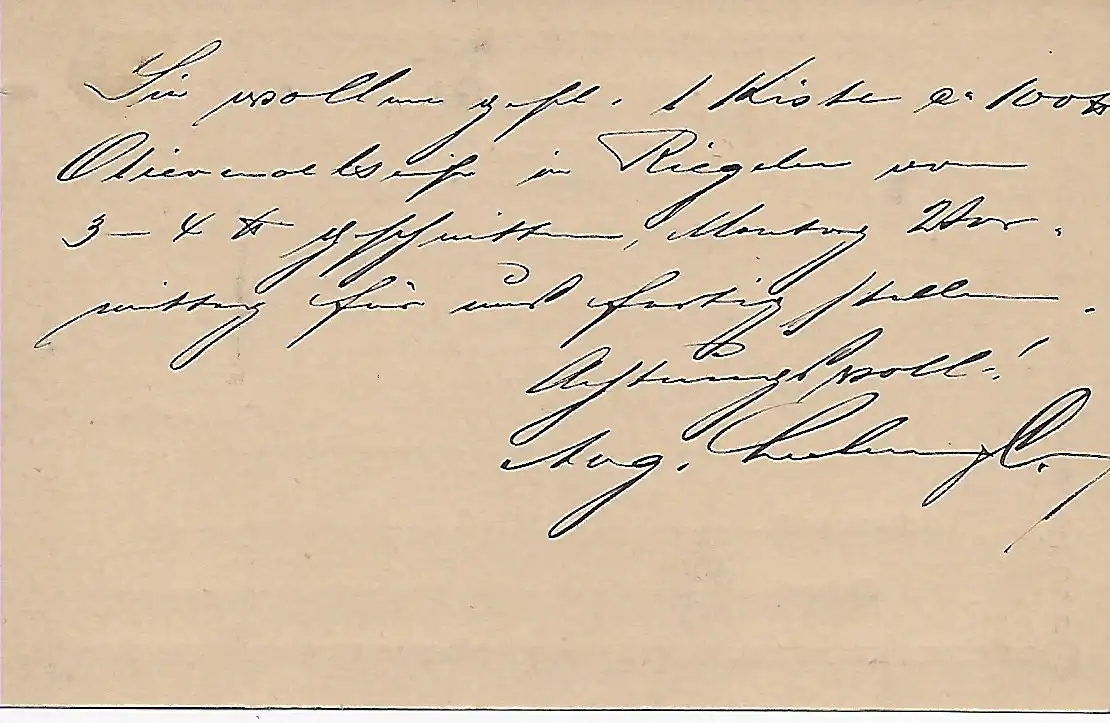 Sie wollen gefl. 1 Kiste a 100 ℔
Olivenoelseife in Riegeln von
3–4 ℔ geschnitten, Montag Vor-
mittag für uns fertig stellen.
Achtungsvoll!
Aug.